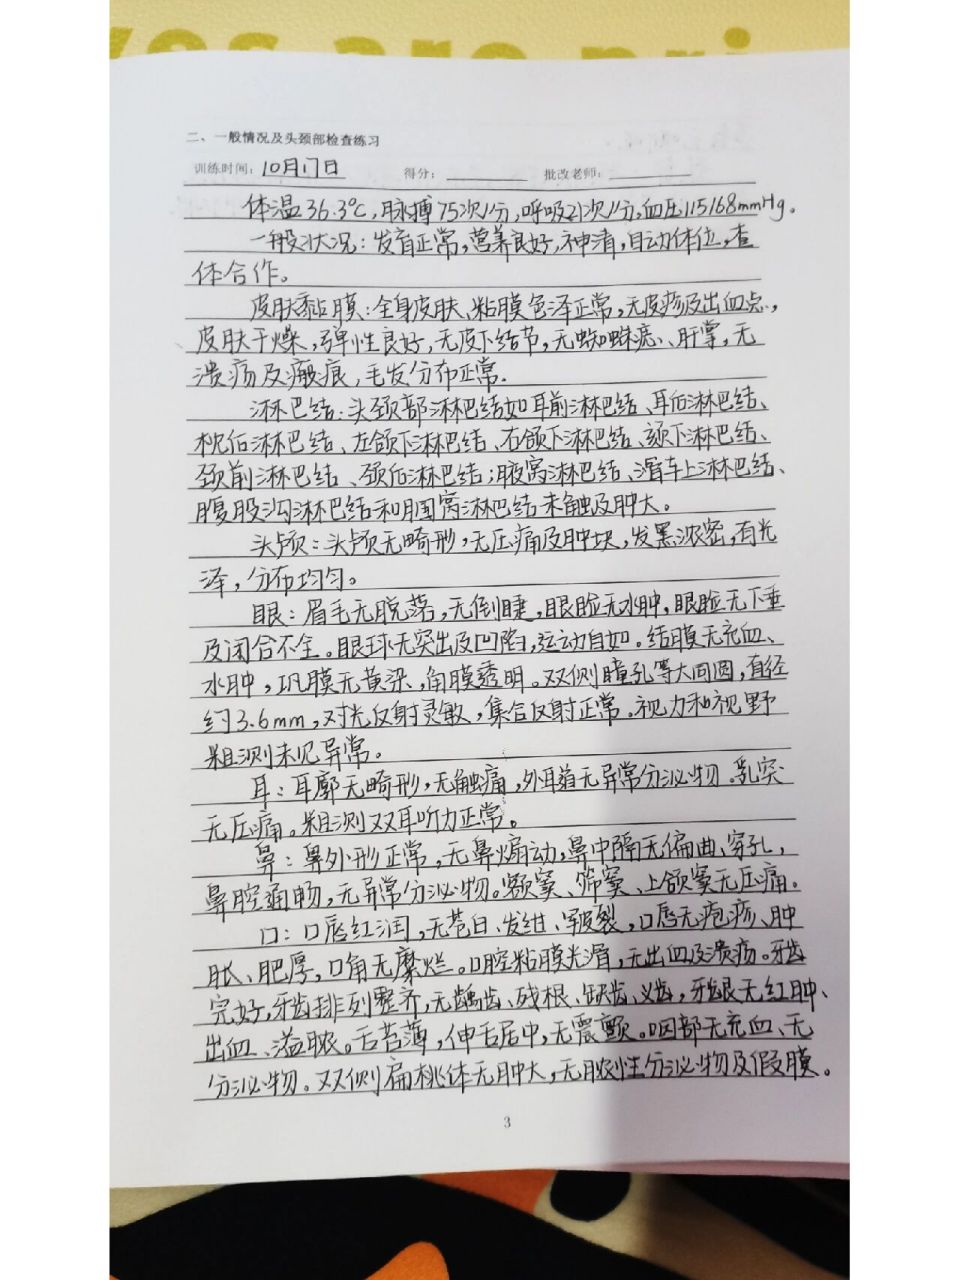 二、一般情况及头颈部检查练习
训练时间：10月17日 得分： 批改老师：
体温36.3℃，脉搏75次/分，呼吸21次/分，血压115/68mmHg。
一般状况：发育正常，营养良好，神清，自动体位，查
体合作。
皮肤黏膜：全身皮肤、粘膜色泽正常，无皮疹及出血点，
皮肤干燥，弹性良好，无皮下结节，无蜘蛛痣、肝掌，无
溃疡及瘢痕，毛发分布正常．
淋巴结：头颈部淋巴结如耳前淋巴结、耳后淋巴结、
枕后淋巴结、左颌下淋巴结、右颌下淋巴结、颏下淋巴结、
颈前淋巴结、颈后淋巴结；腋窝淋巴结、滑车上淋巴结、
腹股沟淋巴结和腘窝淋巴结未触及肿大。
头颅：头颅无畸形，无压痛及肿块，发黑浓密，有光
泽，分布均匀。
眼：眉毛无脱落，无倒睫，眼睑无水肿，眼睑无下垂
及闭合不全。眼球无突出及凹陷，运动自如。结膜无充血、
水肿，巩膜无黄染，角膜透明。双侧瞳孔等大同圆，直径
约3.6mm，对光反射灵敏，集合反射正常。视力和视野
粗测未见异常。
耳：耳廓无畸形，无触痛，外耳道无异常分泌物。乳突
无压痛。粗测双耳听力正常。
鼻：鼻外形正常，无鼻煽动，鼻中隔无偏曲、穿孔，
鼻腔通畅，无异常分泌物。额窦、筛窦、上颌窦无压痛。
口：口唇红润，无苍白、发绀、皲裂，口唇无疱疹、肿
胀、肥厚，口角无糜烂。口腔粘膜光滑，无出血及溃疡。牙齿
完好，牙齿排列整齐，无龋齿、残根、缺齿、义齿，牙龈无红肿、
出血、溢脓。舌苔薄，伸舌居中，无震颤。咽部无充血、无
分泌物。双侧扁桃体无肿大，无脓性分泌物及假膜。
3